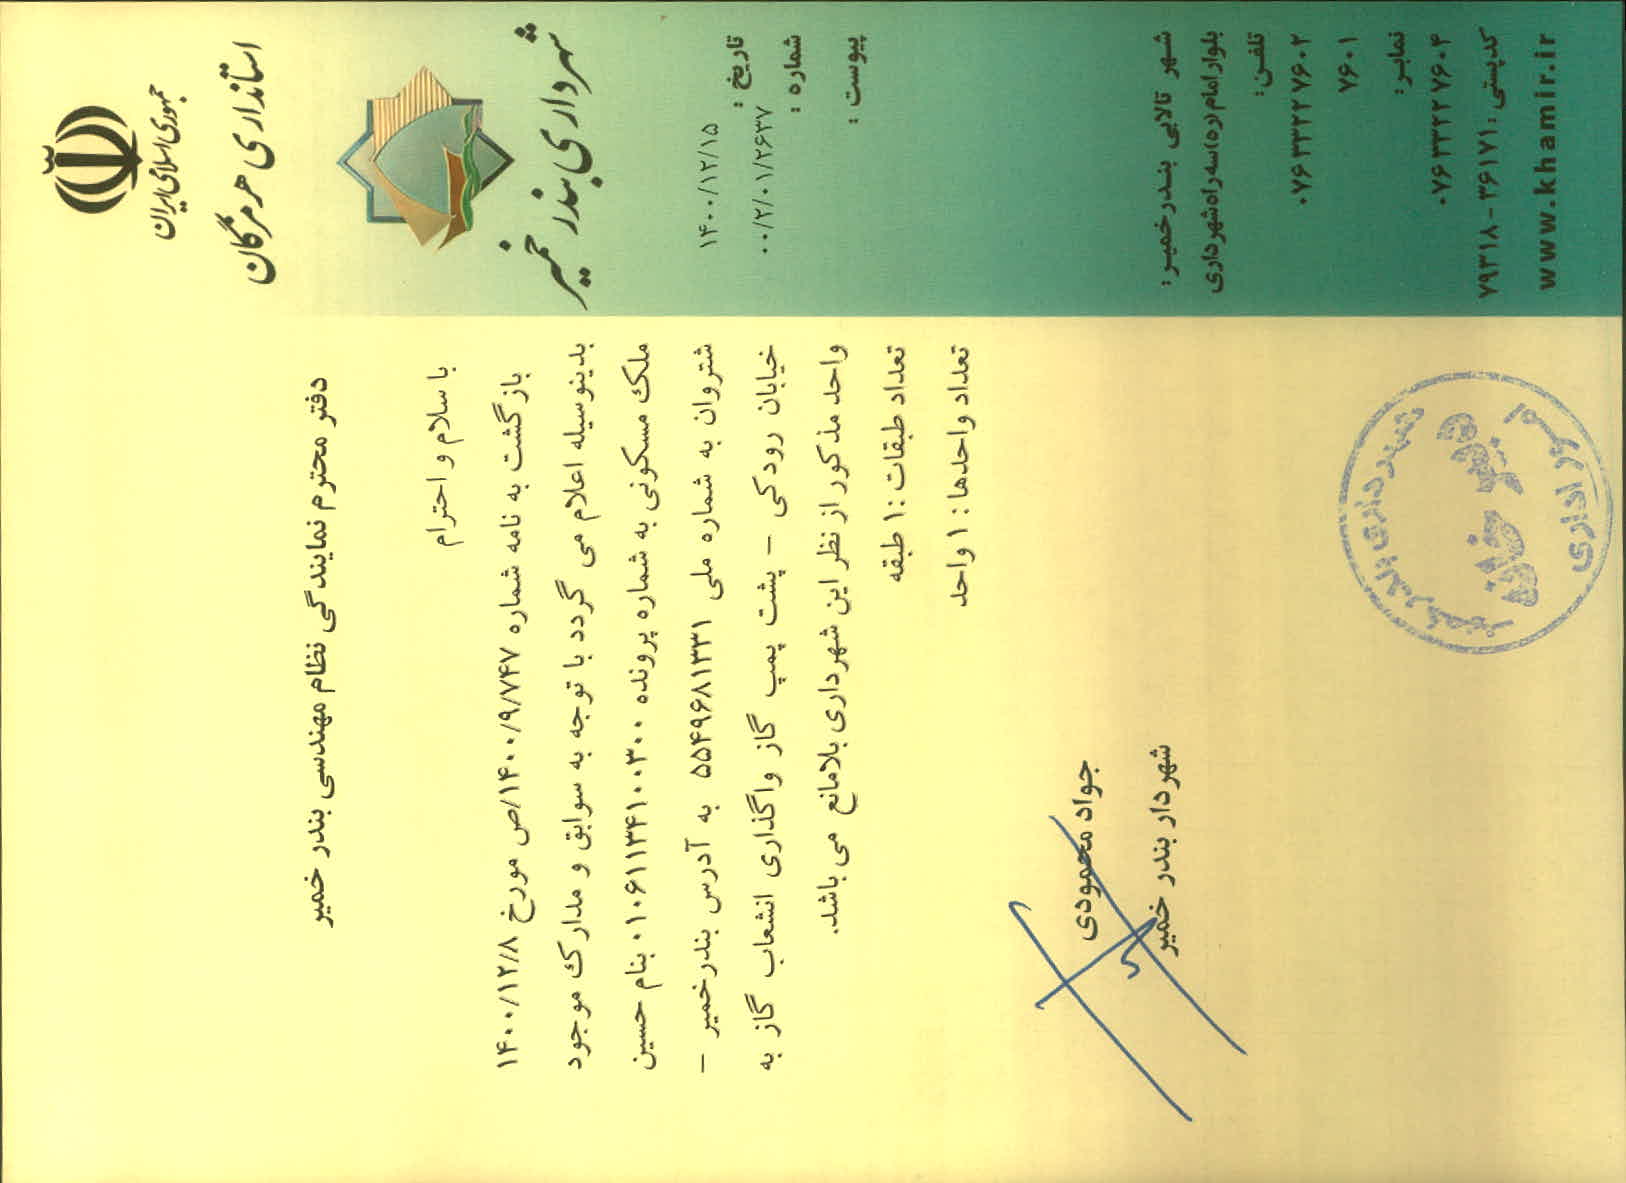 جمهوری اسلامی ایران
استانداری هرمزگان
شهرداری بندر خمیر
تاریخ : ۱۴۰۰/۱۲/۱۵
شماره : ۰۰/۲/۰۱/۲۶۳۷
پیوست :
دفتر محترم نمایندگی نظام مهندسی بندر خمیر
با سلام و احترام
بازگشت به نامه شماره ۱۴۰۰/۹/۷۴۷/ص مورخ ۱۴۰۰/۱۲/۸
بدینوسیله اعلام می گردد با توجه به سوابق و مدارک موجود
ملک مسکونی به شماره پرونده ۰۱۰۶۱۱۳۴۱۰۰۳۰۰ بنام حسین
شتروان به شماره ملی ۵۵۴۹۶۸۱۳۳۱ به آدرس بندرخمیر –
خیابان رودکی – پشت پمپ گاز واگذاری انشعاب گاز به
واحد مذکور از نظر این شهرداری بلامانع می باشد.
تعداد طبقات :۱ طبقه
تعداد واحدها : ۱ واحد
جواد محمودی
شهردار بندر خمیر
شهرداری بندر خمیر
دبیرخانه
امور اداری
شهر تالابی بندرخمیر :
بلوار امام (ره) سه راه شهرداری
تلفن :
۰۷۶۳۳۲۲۷۶۰۲
۷۶۰۱
نمابر :
۰۷۶۳۳۲۲۷۶۰۴
کدپستی : ۳۶۱۷۱ - ۷۹۳۱۸
www.khamir.ir